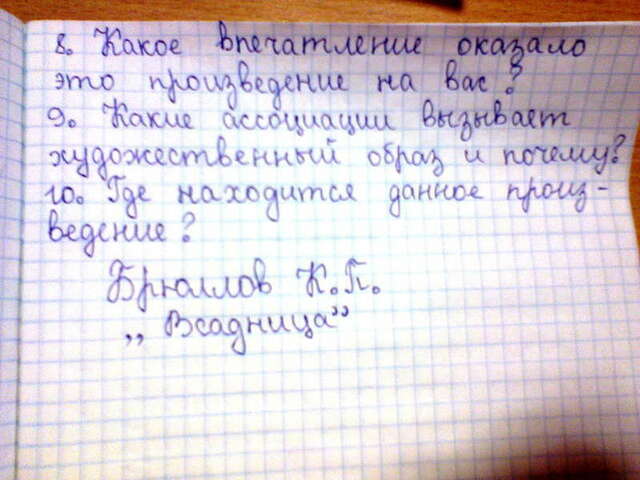 8. Какое впечатление оказало
это произведение на вас?
9. Какие ассоциации вызывает
художественный образ и почему?
10. Где находится данное произ-
ведение?
Брюллов К.П.
„Всадница”